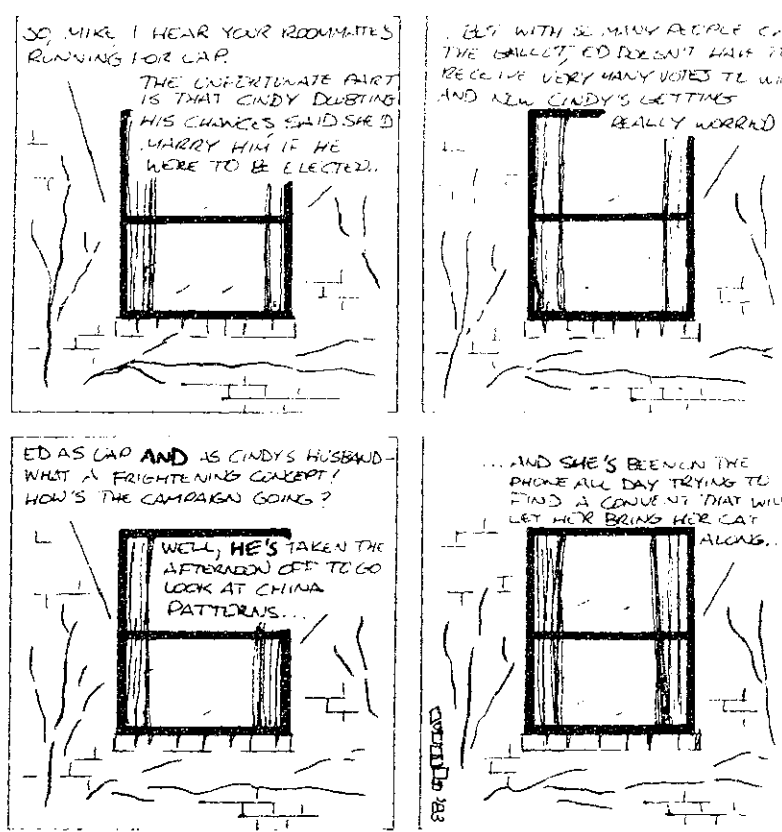 SO, MIKE I HEAR YOUR ROOMMATE'S
RUNNING FOR UAP.
THE UNFORTUNATE PART
IS THAT CINDY DOUBTING
HIS CHANCES SAID SHE'D
MARRY HIM IF HE
WERE TO BE ELECTED..
.. BUT WITH SO MANY PEOPLE
THE BALLOT, ED DOESN'T HAVE
RECEIVE VERY MANY VOTES TO
AND NOW CINDY'S GETTING
REALLY WORRIED
ED AS UAP AND AS CINDY'S HUSBAND-
WHAT A FRIGHTENING CONCEPT!
HOW'S THE CAMPAIGN GOING?
WELL, HE'S TAKEN THE
AFTERNOON OFF TO GO
LOOK AT CHINA
PATTERNS...
...AND SHE'S BEEN ON THE
PHONE ALL DAY TRYING TO
FIND A CONVENT THAT WILL
LET HER BRING HER CAT
ALONG..